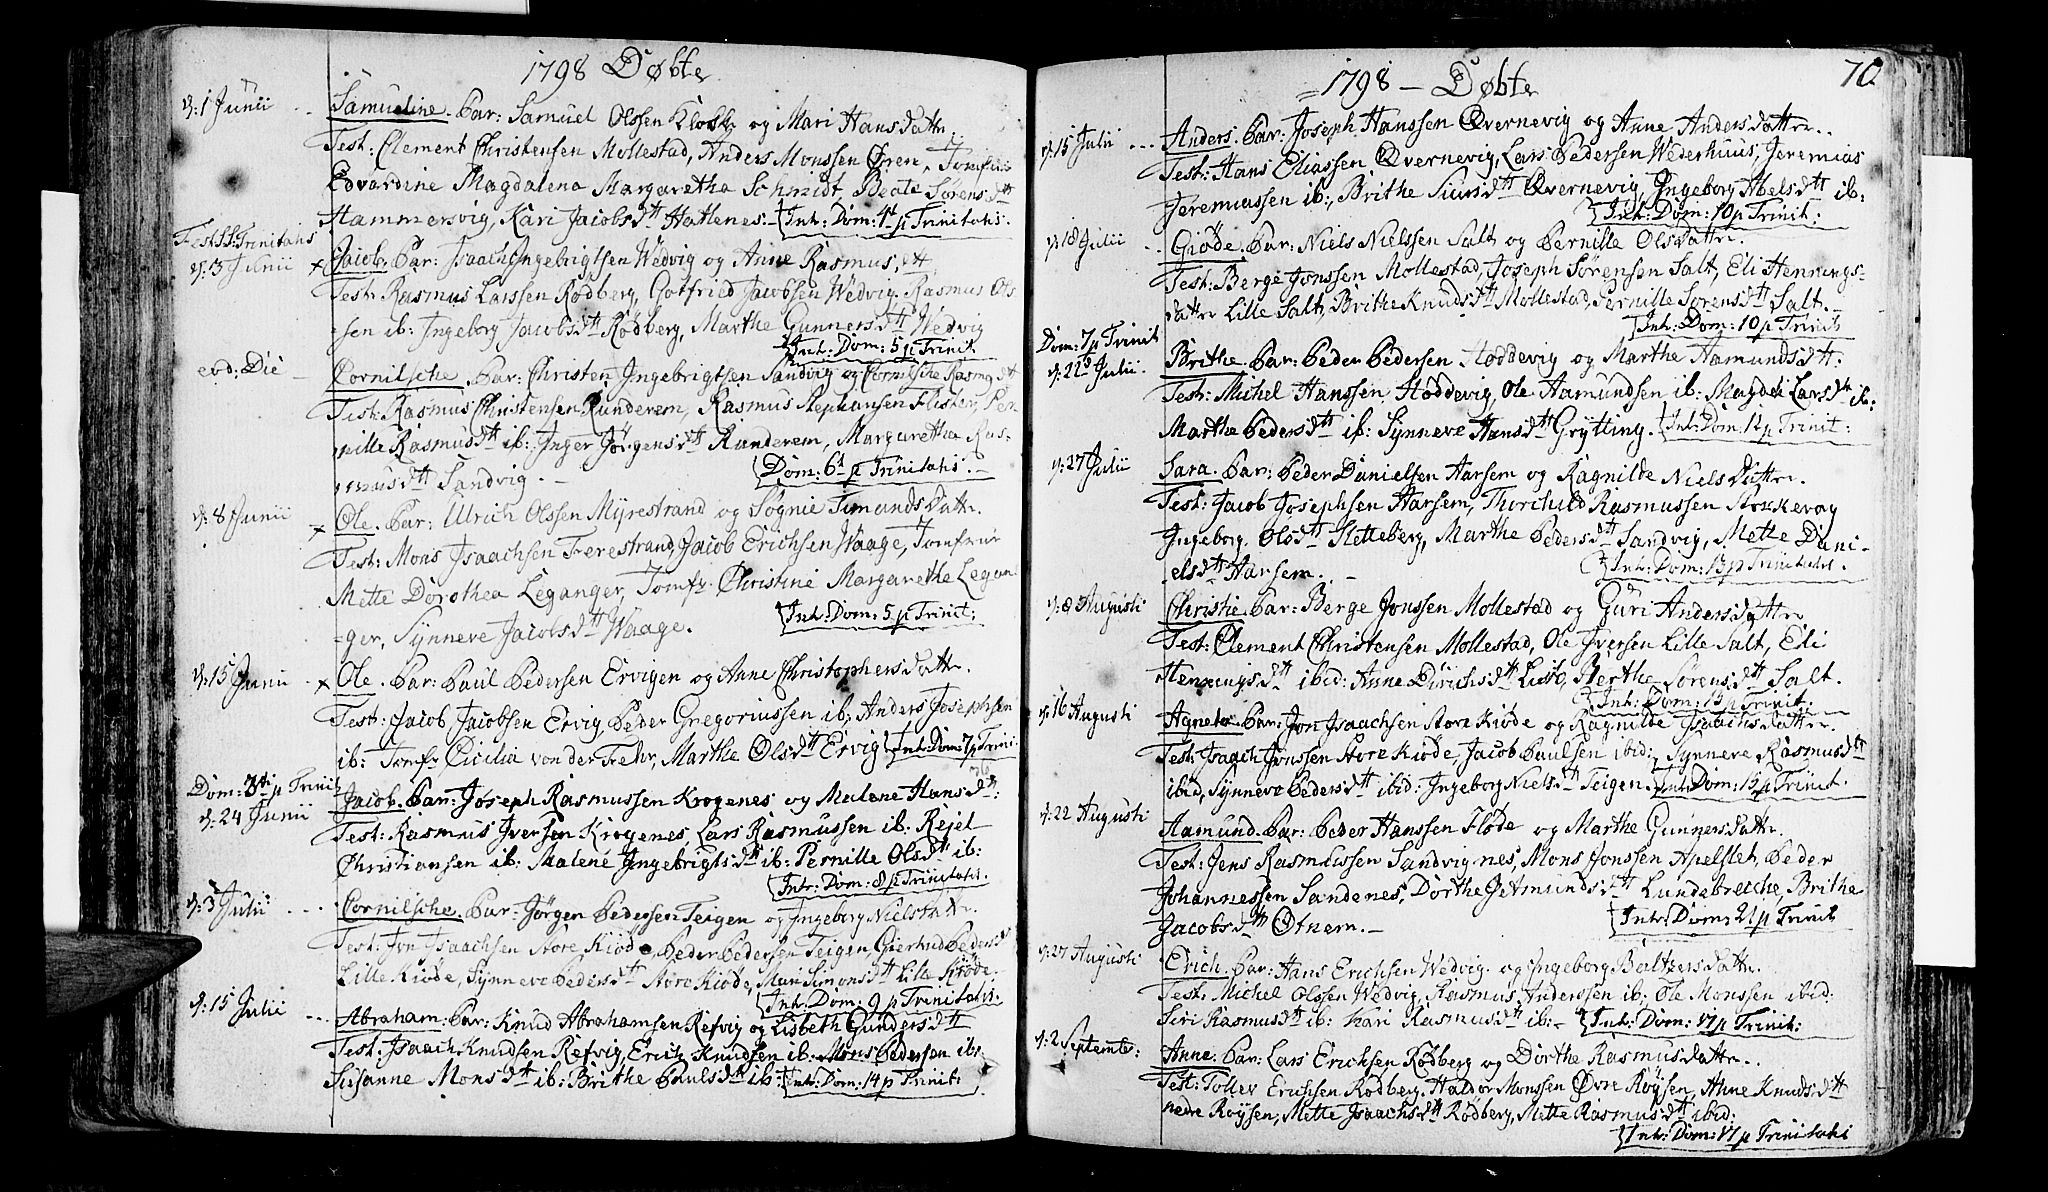 1798 Døbte
d: 1 Junii
Samueline. Par: Samuel Olssen Klosk og Mari Hans datter
Test: Clement Christensen Mollestad, Anders Monssen Øren, Jomfrue
Edvardine Magdalena Margaretha Schmidt, Beate Sørens dtt
Hammersvig, Kari Jacobs dtt Hatlenes. Int: Dom: 4t p Trinitatis.
Fest SS: Trinitatis
d: 3 Junii
Jacob. Par: Isaach Ingebrigtsen Wedvig og Anne Rasmus dtt
Test: Rasmus Larssen Rødberg, Gotfried Jacobsen Wedvig, Rasmus Ols
-sen ib: Ingeborg Jacobs dtt Rødberg, Marthe Gunners dtt Wedvig
Int: Dom: 5 p Trinit
eod: Die
Cornilsche. Par: Christen Ingebrigtsen Sandvig og Cornilsche Rasm: dtt
Test: Rasmus Christensen Runderem, Rasmus Stephansen Flister, Per-
nille Rasmus dtt ib: Inger Jørgens dtt Runderem, Margaretha Ras-
mus dtt Sandvig.
Dom: 6t p Trinitatis.
d: 8 Junii
Ole. Par: Ulrich Olssen Myrestrand og Søgnie Simunds datter.
Test: Mons Isaachsen Ferestrand, Jacob Erichsen Waage, Jomfrue
Mette Dorothea Leganger, Jomfr. Christine Margarethe Legan-
-ger, Synneve Jacobs dtt Waage.
Int: Dom: 5 p Trinit:
d: 15 Junii
Ole. Par: Paul Pedersen Ervigen og Anne Christophers datter.
Test: Jacob Jacobsen Ervig, Peder Gregoriussen ib: Anders Josephsen
ib: Jomfr Cicilia von der Fehr, Marthe Ols dtt Ervig Int: Dom: 7 p Trini:
Dom: 3ti p Trinit
d: 24 Junii
Jacob. Par: Joseph Rasmussen Krogenes og Malene Hans dtt:
Test: Rasmus Iversen Krogenes Lars Rasmussen ib: Rejel
Christiansen ib: Malene Ingebrigts dtt ib: Pernille Ols dtt ib:
Int: Dom: 8 p Trinitatis.
d: 3 Julii
Cornilsche. Par: Jørgen Pedersen Teigen og Ingeborg Niels datter.
Test: Jon Isaachsen Store Kiøde, Peder Pedersen Teigen Giertrud Peders dtt
Lille Kiøde, Synneve Peders dtt Store Kiøde, Mari Simons dtt Lille Kiøde.
Int: Dom: 9 p Trinitatis.
d: 15 Julii
Abraham. Par: Knud Abrahamsen Refvig og Lisbeth Gunders dtt
Test: Isaach Knudsen Refvig, Erich Knudsen ib: Mons Pedersen ib:
Susanne Mons dtt ib: Brithe Pauls dtt ib: Int: Dom: 14 p Trinit:
1798 - Døbte
70
d: 15 Julii
Anders. Par: Joseph Hanssen Qvernevig og Anne Anders datter.
Test: Hans Eliassen Qvernevig, Lars Pedersen Wederhuus, Jeremias
Jeremiassen ib:, Brithe Siurs dtt Qvernevig, Ingeborg Abels dtt ib:
Int: Dom: 10 p Trinit:
d: 18 Julii
Giøde. Par: Niels Nielssen Salt og Pernille Ols datter.
Test: Berge Jonssen Mollestad, Joseph Sørensen Salt, Eli Hennings-
datter Lille Salt, Brithe Knuds dtt Mollestad, Pernille Sørens dtt Salt.
Int: Dom: 10 p Trinit
Dom: 7 p Trinit
d: 22d Julii.
Brithe Par: Peder Pedersen Hoddevig og Marthe Aamunds dtt.
Test: Michel Hanssen, Hoddevig, Ole Aamundsen ib: Magdel Lars dtt ib:
Marthe Peders dtt ib: Synneve Hans dtt Grytting. Int: Dom: 12 p Trinit:
d: 27 Julii
Sara. Par: Peder Danielsen Aarsem og Ragnilde Niels datter.
Test: Jacob Josephsen Aarsem, Thorchild Rasmussen Stokkevaag
Ingeborg Ols dtt Sletteberg, Marthe Peders dtt Sandvig, Mette Dani-
els dtt Aarsem.
Int: Dom: 13 p Trinitatis.
d: 8 Augusti
Christie Par: Berge Jonssen Mollestad og Guri Anders datter
Test: Clement Christensen Mollestad, Ole Iversen Lille Salt, Eli
Hennings dtt ibid: Anne Dirichs dtt Listo, Berthe Sørens dtt Salt.
Int: Dom: 13 p Trinit:
d: 16 Augusti
Agnete. Par: Jon Isaachsen Store Kiøde og Ragnilde Isaachs datter.
Test: Isaach Jonssen Store Kiøde, Jacob Paulsen ibid:, Synneve Rasmus dtt
ibid, Synneve Peders dtt ibid: Ingeborg Niels dtt Teigen. Int: Dom: 13 p Trinit.
d: 22 Augusti
Aamund. Par: Peder Hanssen Fløde og Marthe Gunners datter.
Test: Jens Rasmussen Sandvignes, Mons Jonssen Apelset, Peder
Johannessen Sandenes, Dorthe Getmunds dtt Lundebrecke, Brithe
Jacobs dtt Otnem.
Int: Dom: 21 p Trinit
d: 27 Augusti
Erich. Par: Hans Erichsen Wedvig og Ingeborg Baltzers datter.
Test: Michel Olssen Wedvig, Rasmus Anderssen ib: Ole Monssen ibid:
Siri Rasmus dtt ib: Kari Rasmus dtt ib: Int: Dom: 17 p Trinit:
d: 2 Septembr:
Anne. Par: Lars Erichsen Rødberg og Dorthe Rasmus datter.
Test: Tollev Erichsen Rødberg. Haldor Monssen Øvre Røysen, Anne Knuds dtt
nedre Røysen, Mette Isaachs dtt Rødberg, Mette Rasmus dtt ibid:
Int: Dom: 17 p Trinitatis